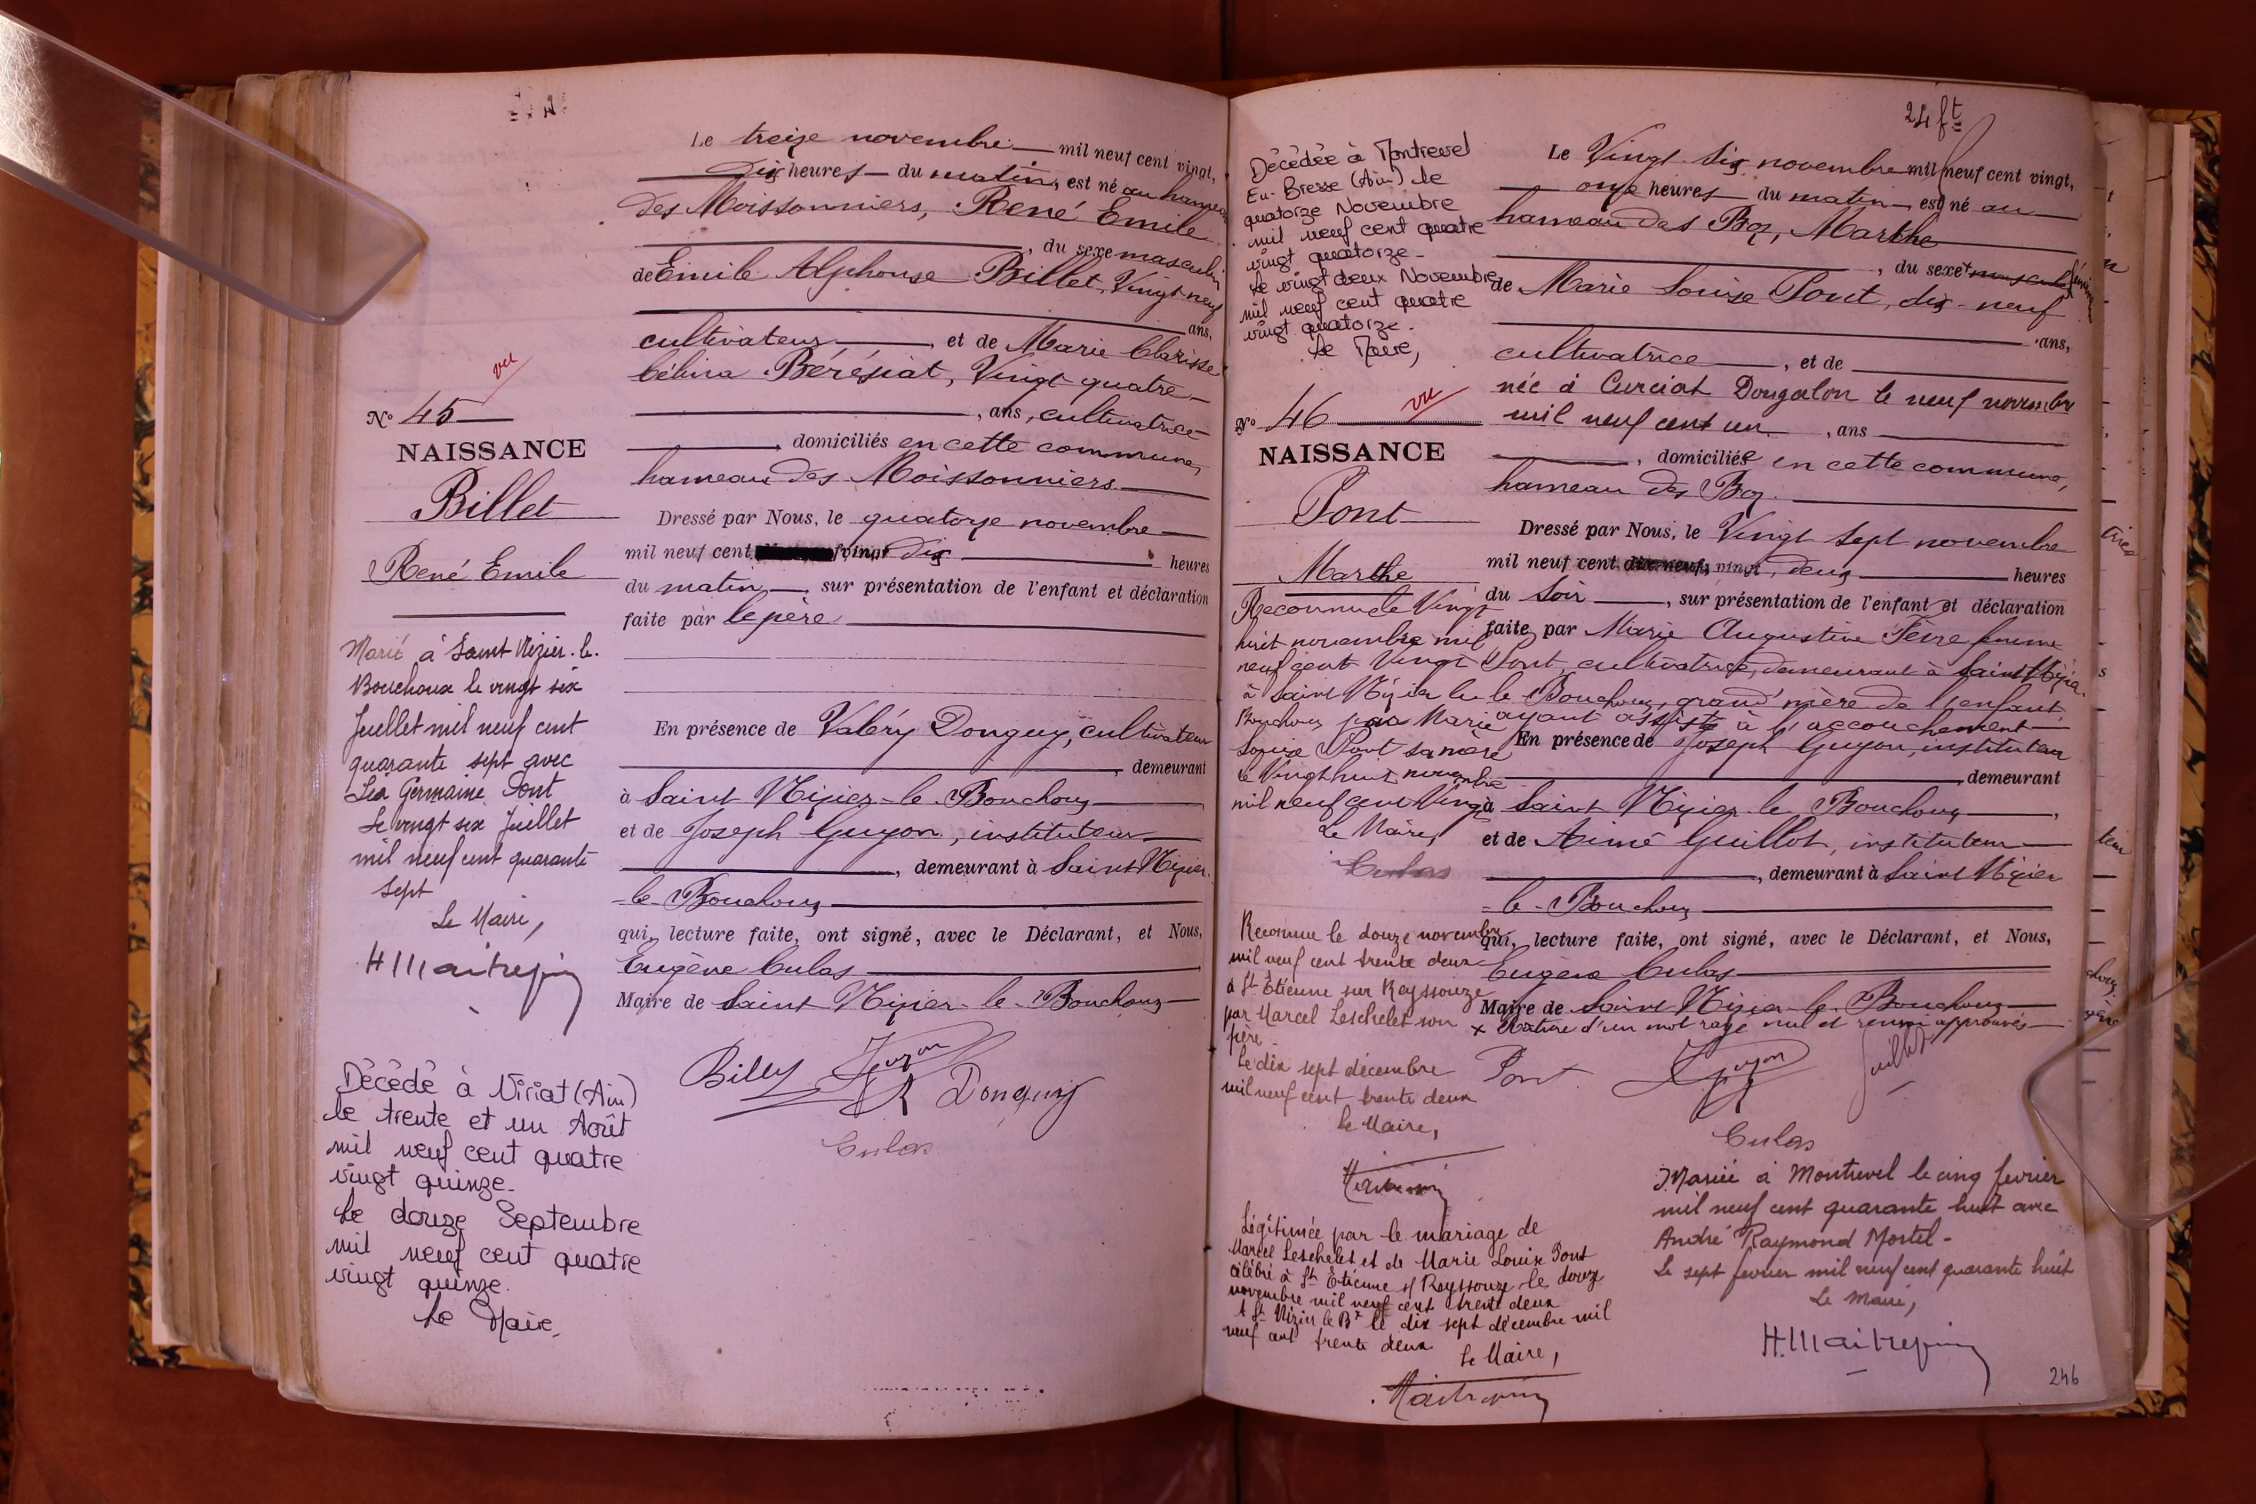 Le treize novembre mil neuf cent vingt,
dix heures du matin, est né au hameau
des Moissonniers, René Emile
, du sexe masculin
de Emile Alphonse Billet, Vingt-neuf
ans,
cultivateur, et de Marie Clarisse
Célina Bérésiat, Vingt quatre
, ans, cultivatrice
, domiciliés en cette commune,
hameau des Moissonniers.
Dressé par Nous, le quatorze novembre
mil neuf cent vingt dix heures
du matin, sur présentation de l'enfant et déclaration
faite par le père
En présence de Valéry Donguy, cultivateur
, demeurant
à Saint Nizier-le-Bouchoux
et de Joseph Guyon, instituteur
, demeurant à Saint Nizier
-le-Bouchoux
qui, lecture faite, ont signé, avec le Déclarant, et Nous,
Eugène Culas
Maire de Saint Nizier-le-Bouchoux
Billet Guyon
Donguy
Culas
vu
N° 45
NAISSANCE
Billet
René Emile
Marié à Saint Nizier-le-
Bouchoux le vingt six
Juillet mil neuf cent
quarante sept avec
Léa Germaine Pont
Le vingt six Juillet
mil neuf cent quarante
sept
Le Maire,
H Maitrepierre
Décédé à Viriat (Ain)
le trente et un Août
mil neuf cent quatre
vingt quinze.
Le douze Septembre
mil neuf cent quatre
vingt quinze.
Le Maire.
24 ft
Décédée à Montrevel
En-Bresse (Ain) le
quatorze Novembre
mil neuf cent quatre
vingt quatorze.
Le vingt deux Novembre
mil neuf cent quatre
vingt quatorze.
Le Maire,
vu
N° 46
NAISSANCE
Pont
Marthe
Reconnue le Vingt
huit novembre mil
neuf cent Vingt
à Saint Nizier le
Bouchoux par Marie
Louise Pont sa mère
le Vingt huit novembre
mil neuf cent Vingt
Le Maire,
Culas
Reconnue le douze novembre
mil neuf cent trente deux
à St Etienne sur Reyssouze
par Marcel Leschelet son
père
Le dix sept décembre
mil neuf cent trente deux
Le Maire,
Légitimée par le mariage de
Marcel Leschelet et de Marie Louise Pont
célébré à St Etienne s/ Reyssouze le douze
novembre mil neuf cent trente deux
A St Nizier le Bx le dix sept décembre mil
neuf cent trente deux
Le Maire,
Le Vingt six novembre mil neuf cent vingt,
onze heures du matin, est né au
hameau des Boz, Marthe
, du sexe + masculin féminin
de Marie Louise Pont, dix-neuf
ans,
cultivatrice, et de
née à Curciat Dongalon le neuf novembre
mil neuf cent un , ans
, domiciliée en cette commune,
hameau des Boz.
Dressé par Nous, le Vingt sept novembre
mil neuf cent dix-neuf, vingt, deux heures
du soir, sur présentation de l'enfant et déclaration
faite par Marie Augustine Fèvre femme
Pont, cultivatrice, demeurant à Saint Nizier
le Bouchoux, grand'mère de l'enfant,
ayant assisté à l'accouchement
En présence de Joseph Guyon, instituteur
, demeurant
à Saint Nizier le Bouchoux,
et de Aimé Guillot, instituteur
, demeurant à Saint Nizier
-le-Bouchoux
qui, lecture faite, ont signé, avec le Déclarant, et Nous,
Eugène Culas
Maire de Saint Nizier-le-Bouchoux
x Rature d'un mot rayé nul et renvoi approuvés
Pont Guyon Guillot
Culas
Mariée à Montrevel le cinq février
mil neuf cent quarante huit avec
André Raymond Mortel-
Le sept février mil neuf cent quarante huit
Le Maire,
H. Maitrepierre
246